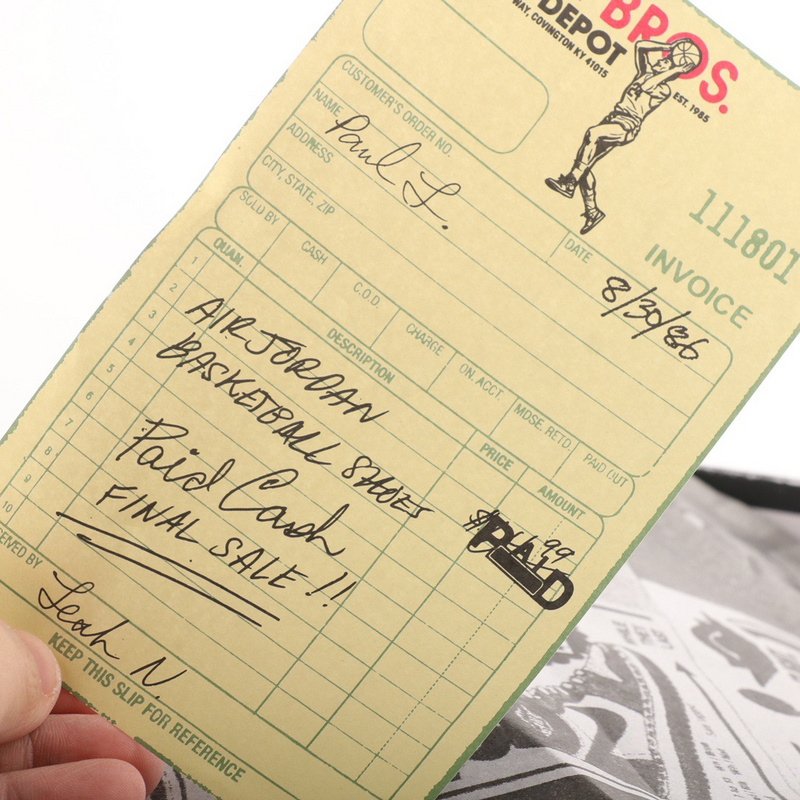 BROS.
DEPOT
WAY, COVINGTON KY 41015
EST. 1985
111801
INVOICE
CUSTOMER'S ORDER NO.
DATE
8/30/86
NAME
Paul L.
ADDRESS
CITY, STATE, ZIP
SOLD BY
CASH
C.O.D.
CHARGE
ON ACCT.
MDSE. RETD.
PAID OUT
QUAN.
DESCRIPTION
PRICE
AMOUNT
1
2
3
4
5
6
7
8
9
10
AIR JORDAN
BASKETBALL SHOES
Paid Cash
FINAL SALE!!
PAID
Leah N.
KEEP THIS SLIP FOR REFERENCE